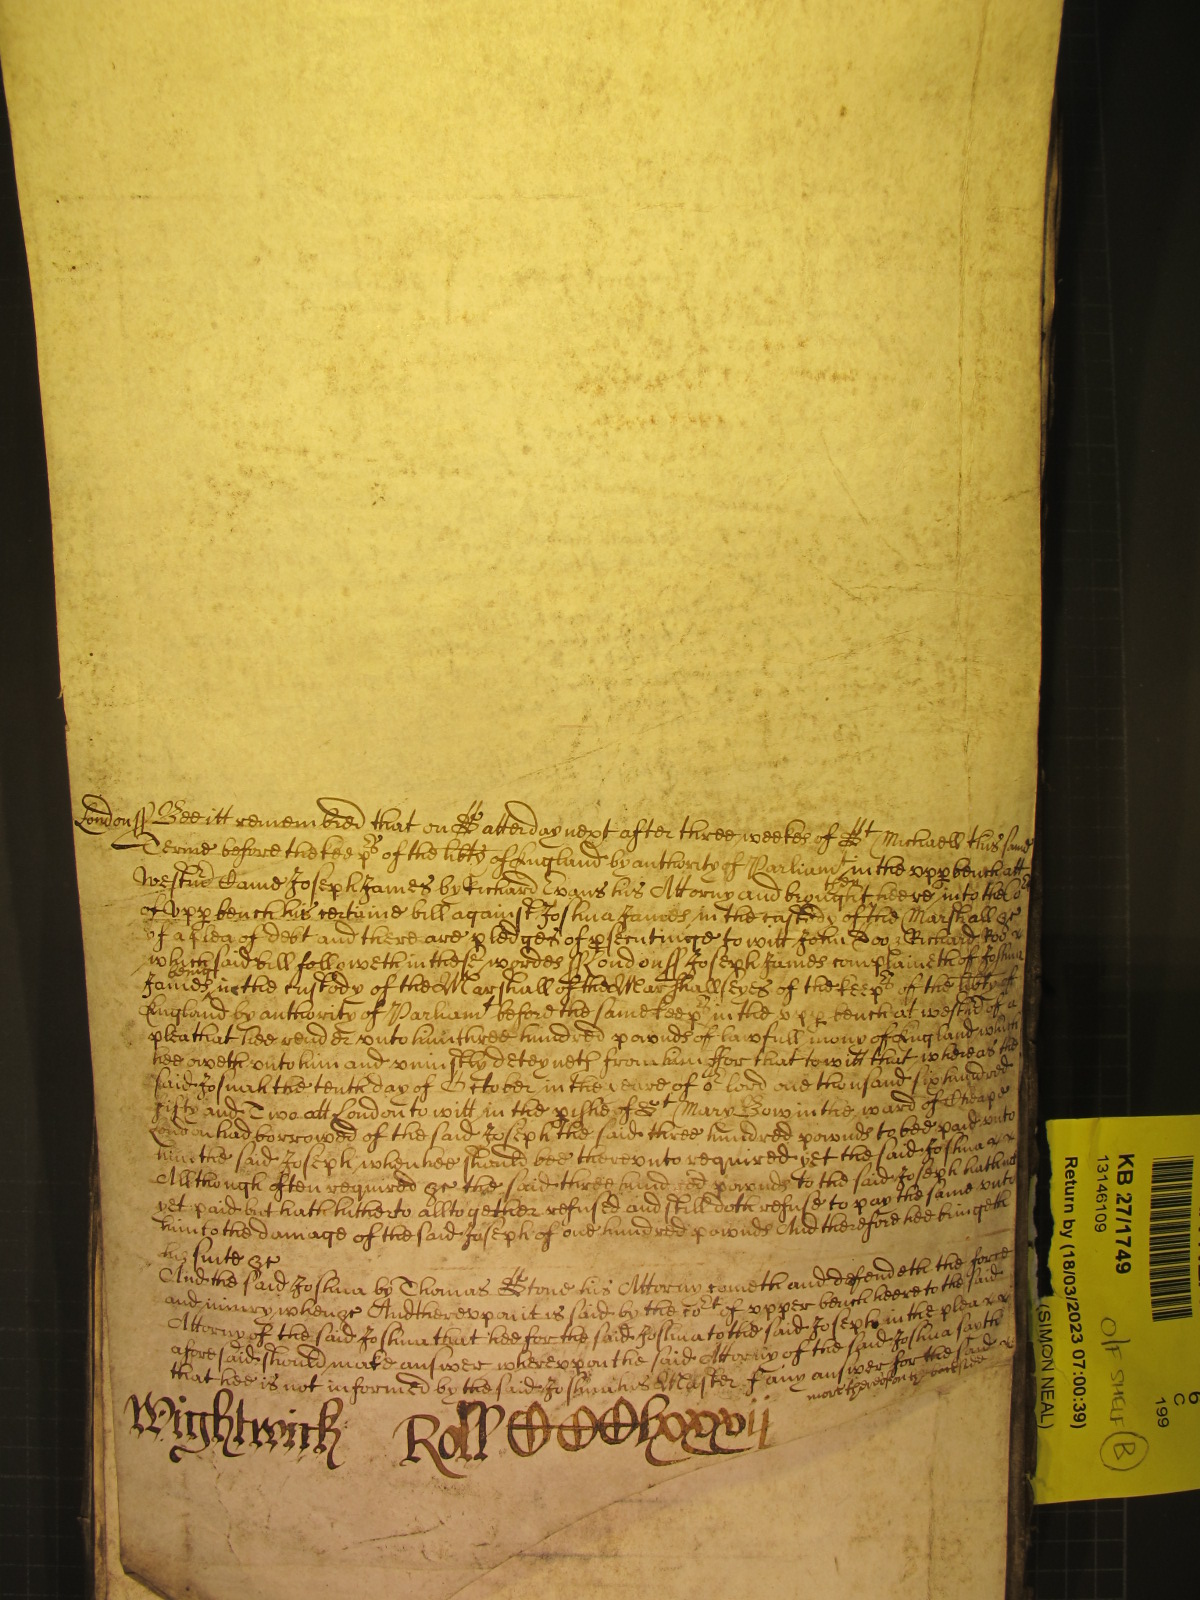 London ss Bee itt remembred that on Satterday next after three weekes of St Michaell this same
Terme before the keeps of the libty of England by authority of Parliamt in the upp bench att
Westmr Came Joseph James by Richard Evans his Attorny and brought heere into the Cot
then
of Upp bench his certaine bill against Joshua James in the custody of the Marshall &c
of a plea of debt and there are pledges of psecutinge to witt John Doo & Richard Roo &
which said bill followeth in these wordes ss London ss Joseph James complaineth of Joshua
being
James in the Custody of the Marshall of the Marshallseyes of the keeps of the libty of
England by authority of Parliamt before the same keeps in the upp bench at westmr of a
plea that hee render unto him three hundred pounds of lawfull mony of England which
hee oweth unto him and uniustly deteyneth from him ffor that to witt that whereas the
said Josuah the tenth day of October in the yeare of or lord one thousand six hundred
fifty and Two att London to witt in the pishe of St Mary Bow in the ward of Cheape
London had borrowed of the said Joseph the said three hundred pownds to bee paid unto
him the said Joseph when hee should bee thereunto required yet the said Joshua
Allthough often required &c the said three hundred pownds to the said Joseph hath not
yet paid but hath hitherto alltogether refused and still doth refuse to pay the same unto
him to the damage of the said Joseph of one hundred pownds And therefore hee bringeth
his suite &c
And the said Joshua by Thomas Stone his Attorny cometh and defendeth the force
and iniury when &c And thereupon it is said by the Cort of upper bench heere to the said
Attorny of the said Joshua that hee for the said Joshua to the said Joseph in the plea
aforesaid should make answer whereupon the said Attorny of the said Joshua saith
that hee is not informed by the said Joshua his Master of any answer for the said
more thereof on ye otherside
Wightwick Roll CCCClxxxvij
KB 27/1749
13146109
Return by (18/03/2023 07:00:39)
(SIMON NEAL)
O/F SHELF B
6
C
199